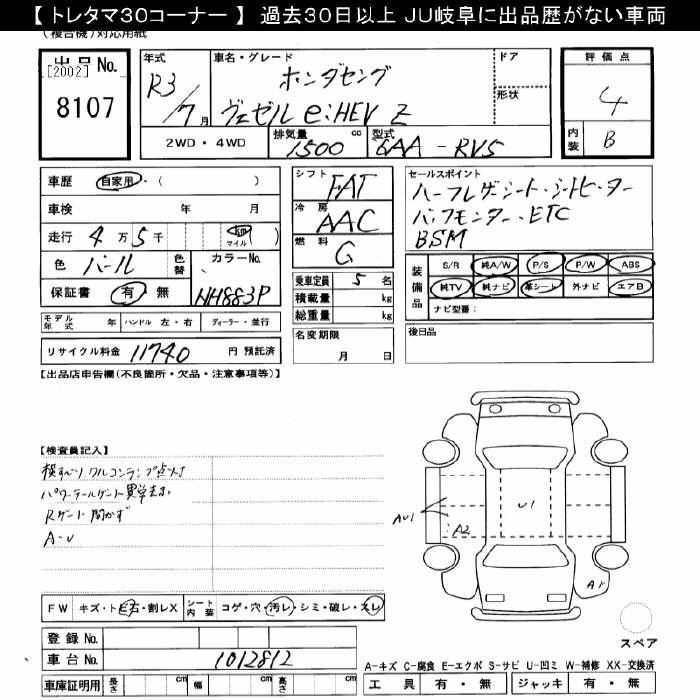 【トレタマ30コーナー】 過去30日以上 JU岐阜に出品歴がない車両
(複合機)対応用紙
出品No. [2002] 8107
年式 R3/7月
車名・グレード ホンダセング ヴェゼル e:HEV Z
ドア
形状
評価点 4
内装 B
2WD・4WD
排気量 1500 cc
型式 6AA-RV5
車歴 自家用・( )
車検 年 月
走行 4万5千 km マイル ( )
色 パール 色替
カラーNo. NH883P
保証書 有 無
シフト FAT
冷房 AAC
燃料 G
乗車定員 5 名
積載量 kg
総重量 kg
名変期限 月 日
セールスポイント
ハーフレザーシート・シートヒーター
バックモニター、ETC
BSM
装備品 S/R 純A/W P/S P/W ABS
純TV 純ナビ 革シート 外ナビ エアB
ナビ型番:
後日品
モデル年式 年 ハンドル 左・右 ディーラー・並行
リサイクル料金 11740 円 預託済
【出品店申告欄(不良箇所・欠品・注意事項等)】
【検査員記入】
横すべり、ワルコンランプ点灯
パワーテールゲート異学表示
Rゲート開かず
A-U
AU1
A2
U1
A1
FW キズ・トビ石・割レX シート内装 コゲ・穴・汚レ・シミ・破レ・スレ
登録No.
車台No. 1012812
車庫証明用 長さ cm 幅 cm 高さ cm
スペア
A-キズ C-腐食 E-エクボ S-サビ U-凹ミ W-補修 XX-交換済
工具 有・無 ジャッキ 有・無